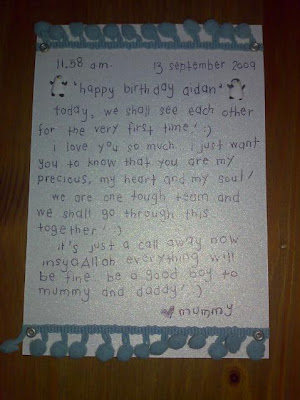 11.58 am. 13 september 2009
'happy birthday aidan'
today, we shall see each other
for the very first time! :)
i love you so much. i just want
you to know that you are my
precious, my heart and my soul!
we are one tough team and
we shall go through this
together! :)
it's just a call away now
insyaAllah everything will
be fine. be a good boy to
mummy and daddy! :)
mummy